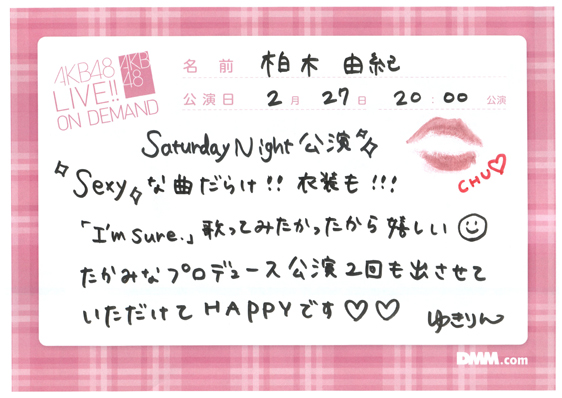 AKB48
LIVE!!
ON DEMAND
AKB
48
名前 柏木 由紀
公演日 2月 27日 20:00 公演
Saturday Night 公演
Sexyな曲だらけ!! 衣装も!!!
CHU♡
「I'm sure.」歌ってみたかったから嬉しい☺
たかみなプロデュース公演2回も出させて
いただけてHAPPYです♡♡
ゆきりん
DMM.com